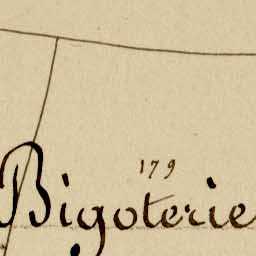 179
Bigoterie